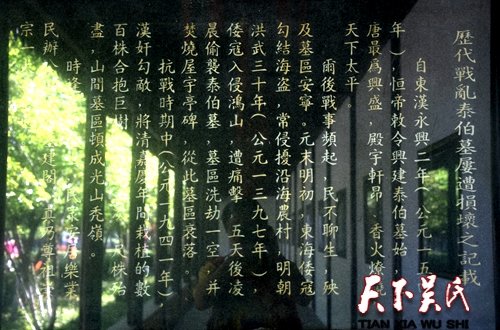 歷代戰亂泰伯墓屢遭損壞之記載
自東漢永興二年(公元一五
年),恒帝敕令興建泰伯墓始,
唐最爲興盛,殿宇軒昂,香火燎
天下太平。
爾後戰事頻起,民不聊生,殃
及墓區安寧。元末明初,東海倭寇
勾結海盜,常侵擾沿海農村,明朝
洪武三十年(公元一三九七年),
倭寇入侵鴻山,遭痛擊,五天後凌
晨偷襲泰伯墓,墓區洗劫一空,并
焚燒屋宇亭碑,從此墓區衰落。
抗戰時期中(公元一九四一年)
漢奸勾敵,將清嘉慶年間栽植的數
百株合抱巨樹 株殆
盡,山間墓區頓成光山禿嶺。
時逢 安居樂業
民辦 建閣 真乃尊祖
宗一
天下吴氏
TIAN XIA WU SHI